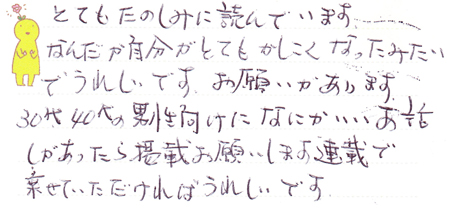 とてもたのしみに読んでいます
なんだか自分がとてもかしこくなったみたい
でうれしいです。お願いがあります
30代40代の男性向けになにかいいお話
しがあったら掲載お願いします連載で
乗せていただければうれしいです